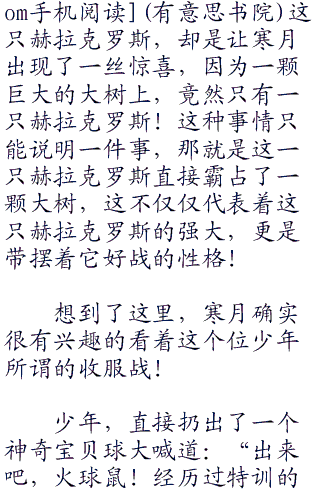 om手机阅读](有意思书院)这
只赫拉克罗斯，却是让寒月
出现了一丝惊喜，因为一颗
巨大的大树上，竟然只有一
只赫拉克罗斯！这种事情只
能说明一件事，那就是这一
只赫拉克罗斯直接霸占了一
颗大树，这不仅仅代表着这
只赫拉克罗斯的强大，更是
带摆着它好战的性格！
想到了这里，寒月确实
很有兴趣的看着这个位少年
所谓的收服战！
少年，直接扔出了一个
神奇宝贝球大喊道：“出来
吧，火球鼠！经历过特训的